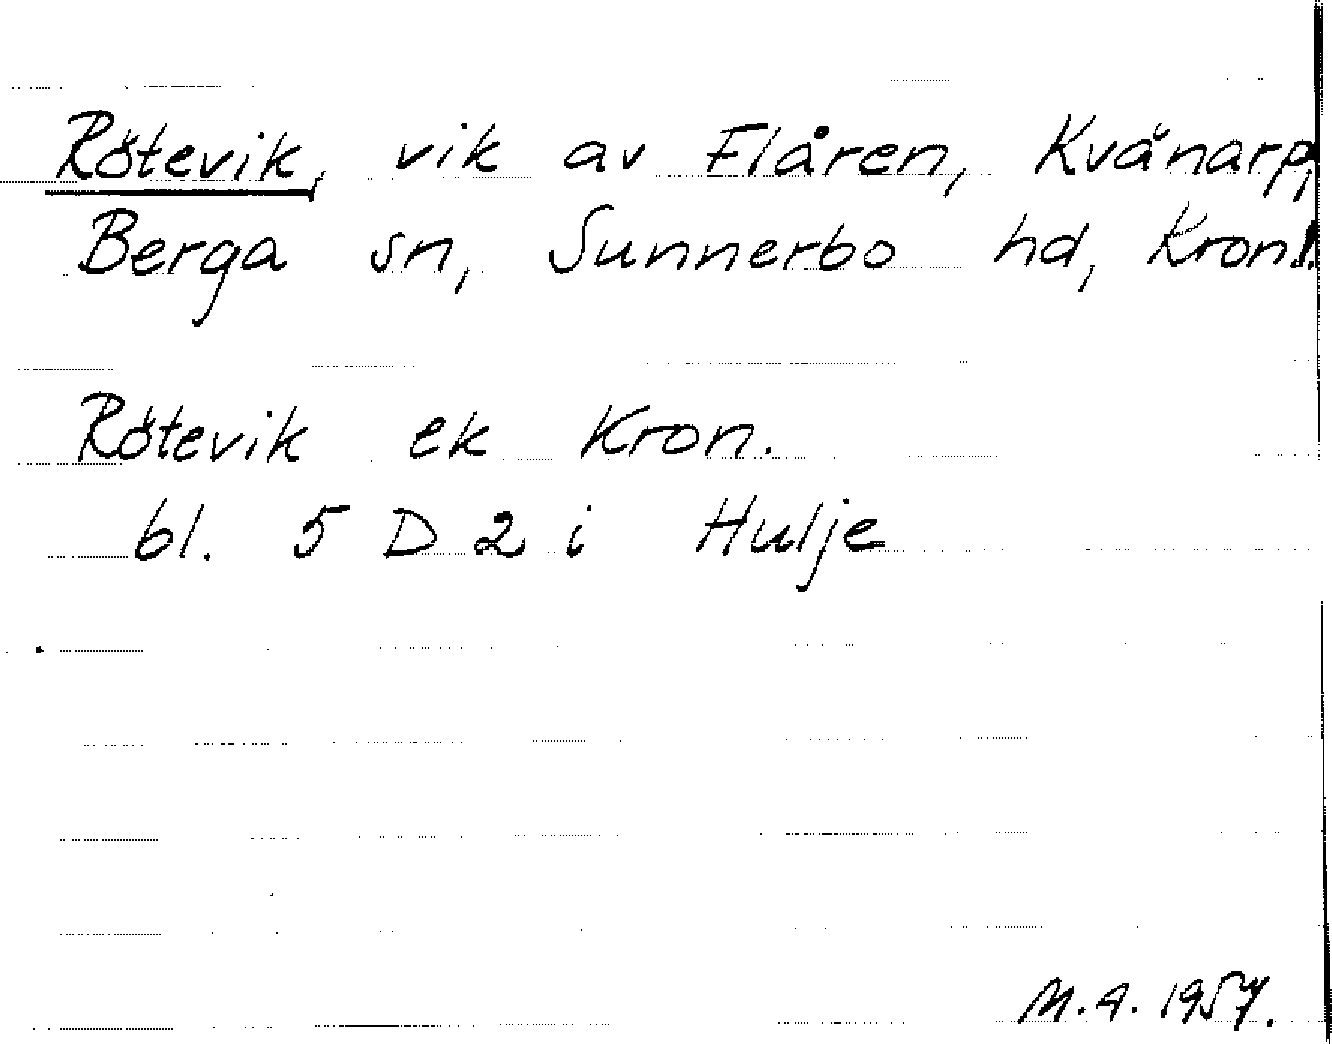 Rötevik, vik av Flåren, Kvänarp,
Berga sn, Sunnerbo hd, Kronl.
Rötevik ek Kron.
bl. 5 D 2 i Hulje
M.A. 1957.